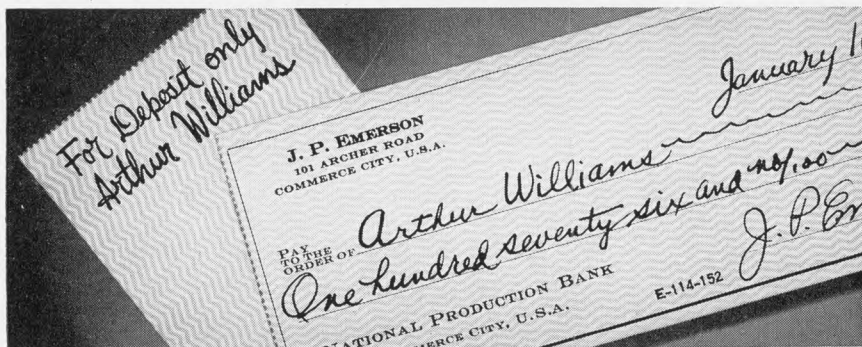 For Deposit only
Arthur Williams
January 1
J. P. EMERSON
101 ARCHER ROAD
COMMERCE CITY, U.S.A.
PAY
TO THE
ORDER OF Arthur Williams
One hundred seventy six and no/.00
J. P. Em
NATIONAL PRODUCTION BANK
E-114-152
MERCE CITY, U.S.A.